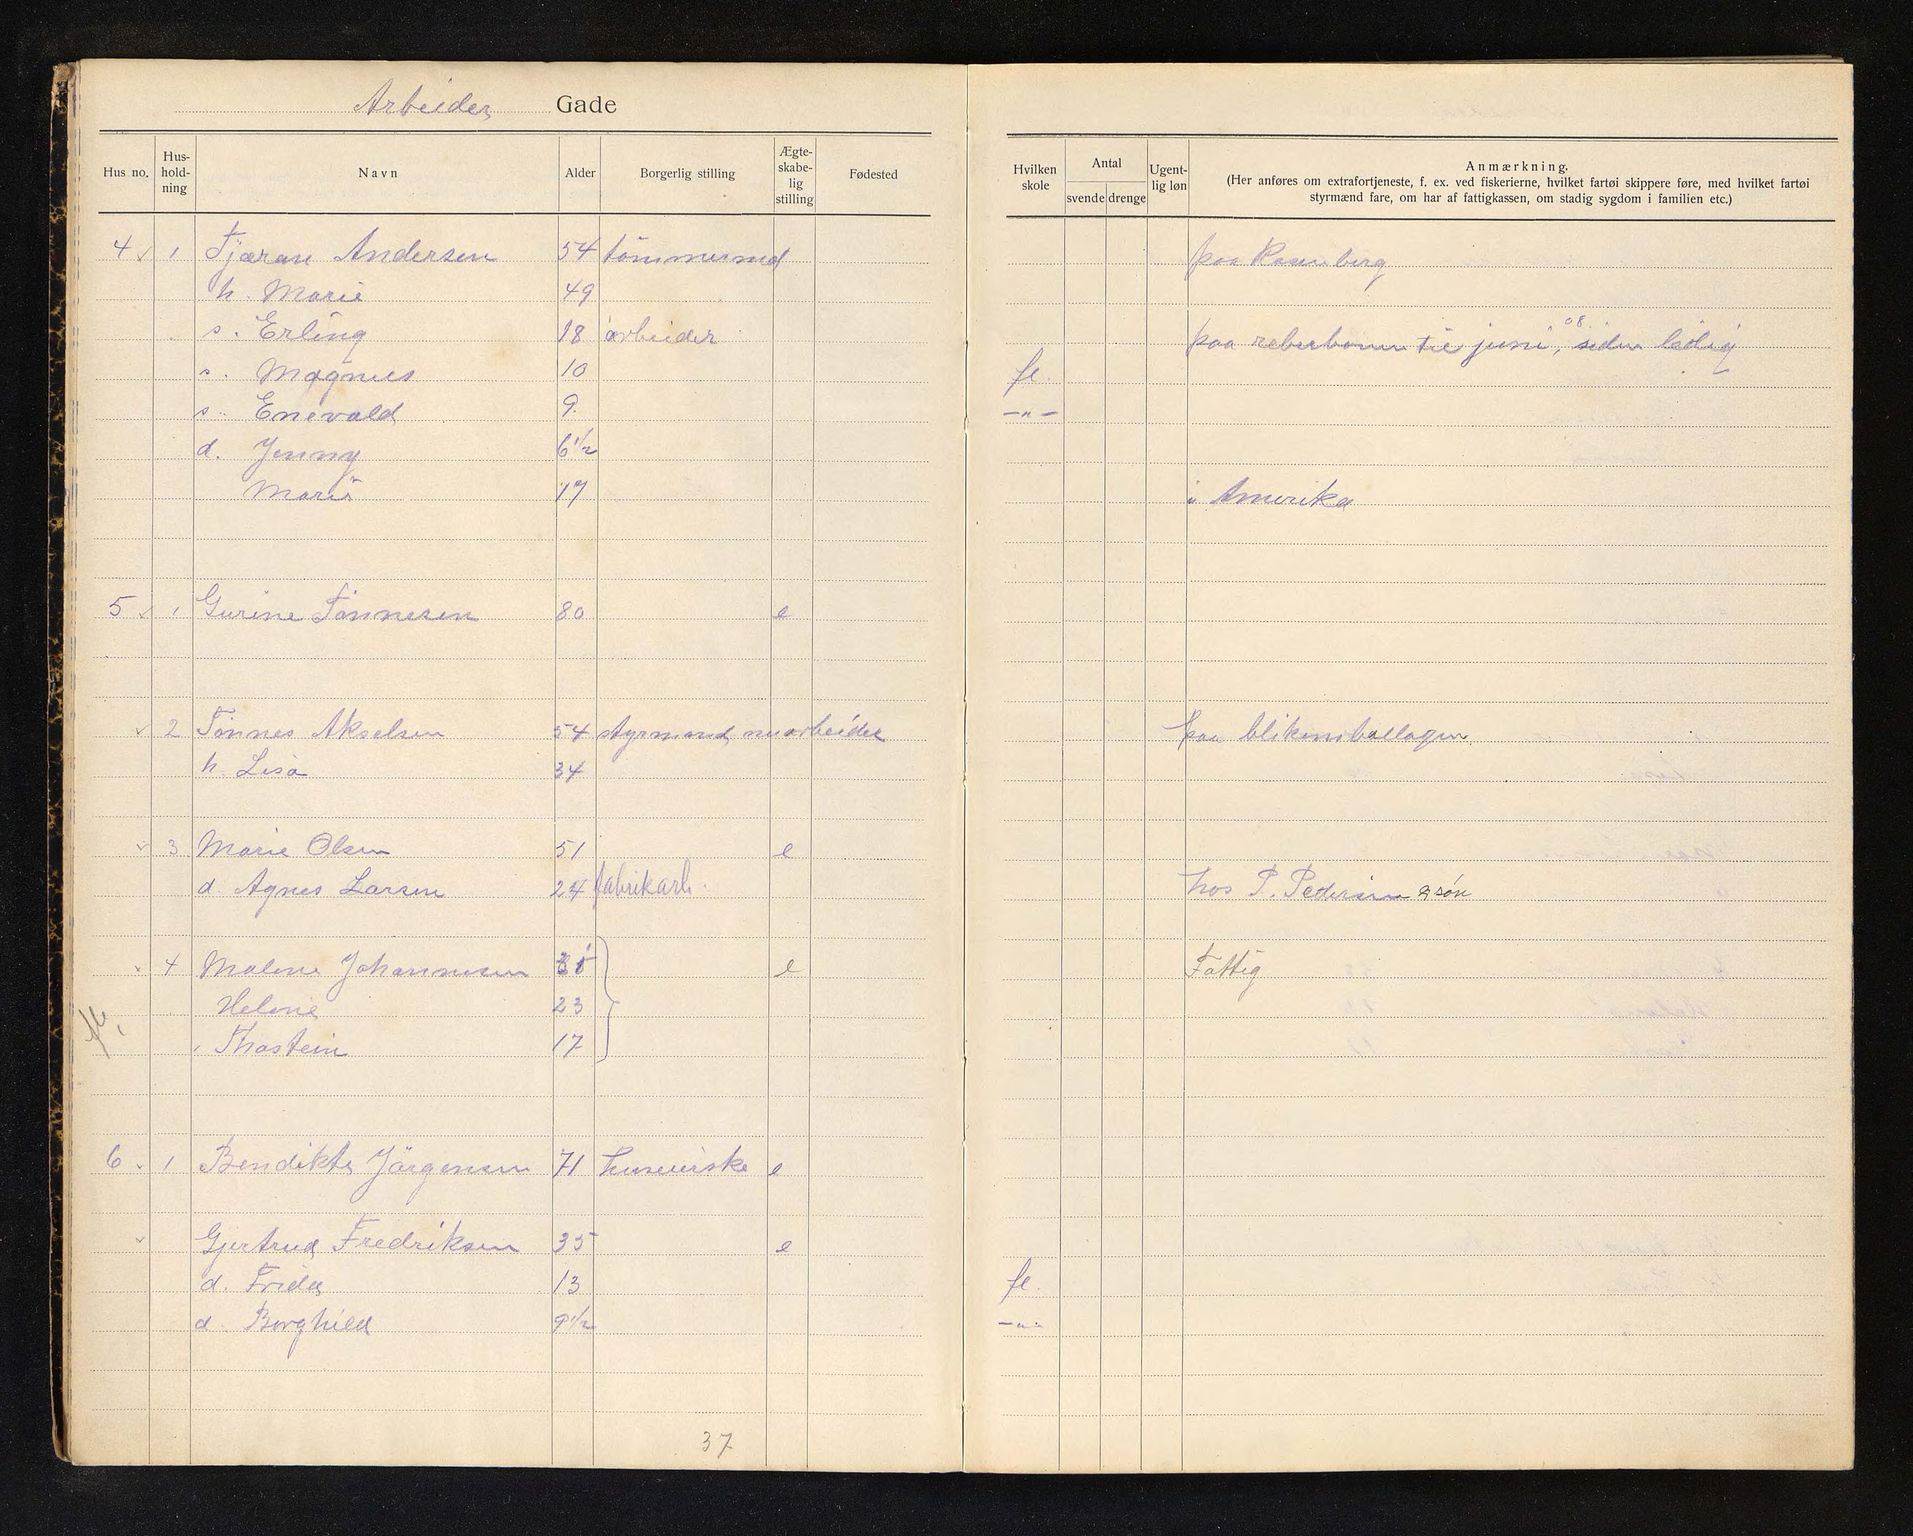 Arbeider Gade
Hus no. Hus-hold-ning Navn Alder Borgerlig stilling Ægte-skabe-lig stilling Fødested Hvilken skole Antal svende drenge Ugent-lig løn Anmærkning.
(Her anføres om extrafortjeneste, f. ex. ved fiskerierne, hvilket fartøi skippere føre, med hvilket fartøi
styrmænd fare, om har af fattigkassen, om stadig sygdom i familien etc.)
4 1 Tjæran Andersen 54 tömmermd paa Rosenberg
h. Marie 49
s. Erling 18 arbeider paa reberbanen til juni 08, siden ledig
s. Magnus 10 fl.
s. Enevald 9. —"—
d. Jenny 6 1/2
Marie 17 i Amerika
5 1 Gurine Tönnesen 80 e
2 Tönnes Akselsen 54 styrmand, nu arbeider paa blikemballagen
h. Lisa 34
3 Marie Olsen 51 e
d. Agnes Larsen 24 fabrikarb. hos P. Pedersen & søn
4 Malene Johannesen e Fattig
Helene 23
Thastein 17
6 1 Bendikte Jörgensen 71 huseierske e
Gjertrud Fredriksen 35 e
d. Frida 13 fl.
d. Borghild 9 1/2 —"—
37